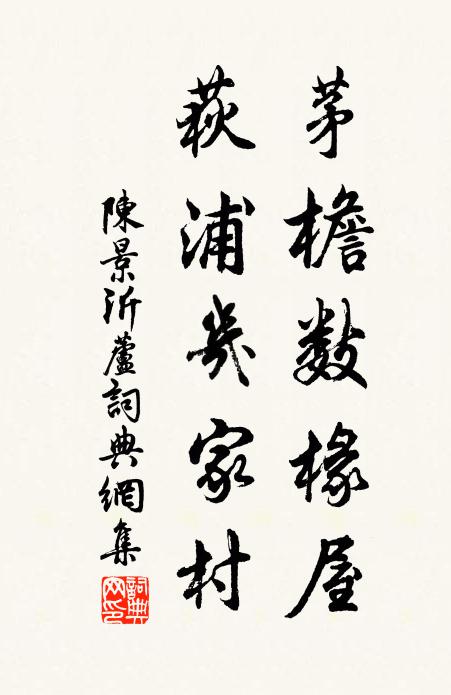 茅檐数椽屋
荻浦幾家村
陳景沂蘆詞典網集
詞典网印